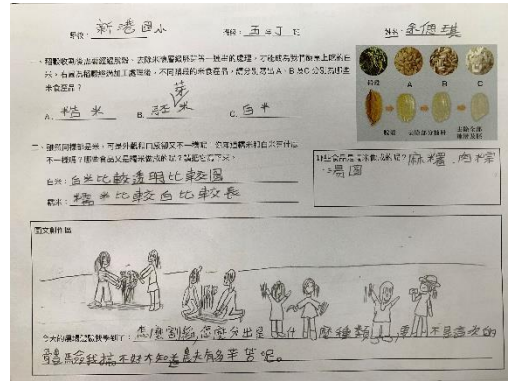 學校： 新港國小 班級： 五年丁班 姓名：
一、稻穀收割後需要經過脫殼、去除米糠層與胚芽等一連串的處理，才能成為我們餐桌上吃的白
米。右圖為稻穀經過加工處理後，不同階段的米食產品，請分別寫出A、B及C分別為哪些
米食產品？
A. 糙米 B. 胚芽米 C. 白米
稻穀 A B C
脫殼 去除部分麩糠 去除全部
二、雖然同樣都是米，可是外觀和口感卻又不一樣呢！你知道糯米和白米有什麼
不一樣嗎？哪些食品又是糯米做成的呢？請把它寫下來。
白米： 白米比較透明比較圓
糯米： 糯米比較白比較長
哪些食品是糯米做成的呢？ 麻糬、肉粽
、湯圓
圖文創作區
今天的農場體驗我學到了： 怎麼割稻，怎麼分出是什麼種類，要不是這次的
體驗我搞不好不知道農夫有多辛苦呢。